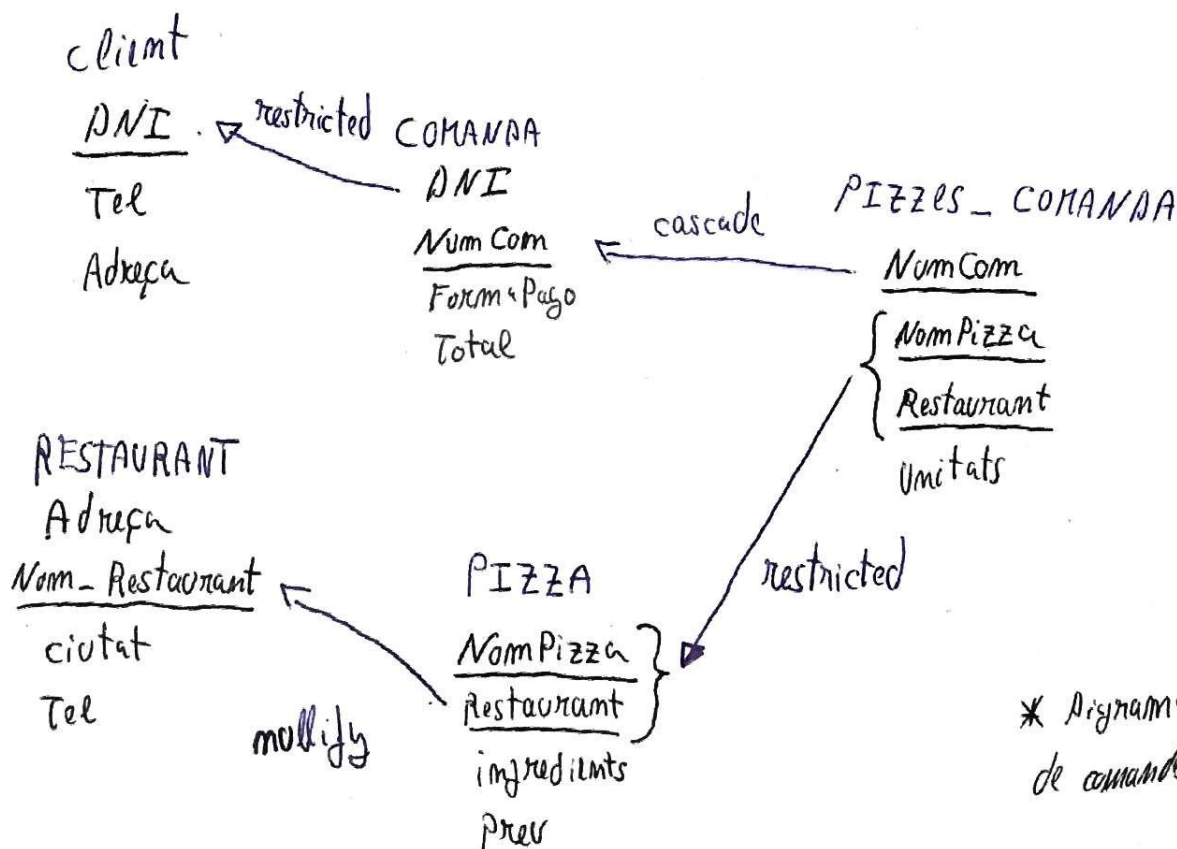 client
DNI
Tel
Adreça
restricted
COMANDA
DNI
NumCom
FormaPago
Total
cascade
PIZZES_COMANDA
NumCom
NomPizza
Restaurant
Unitats
RESTAURANT
Adreça
Nom_Restaurant
ciutat
Tel
nullify
PIZZA
NomPizza
Restaurant
ingredients
preu
restricted
*
de